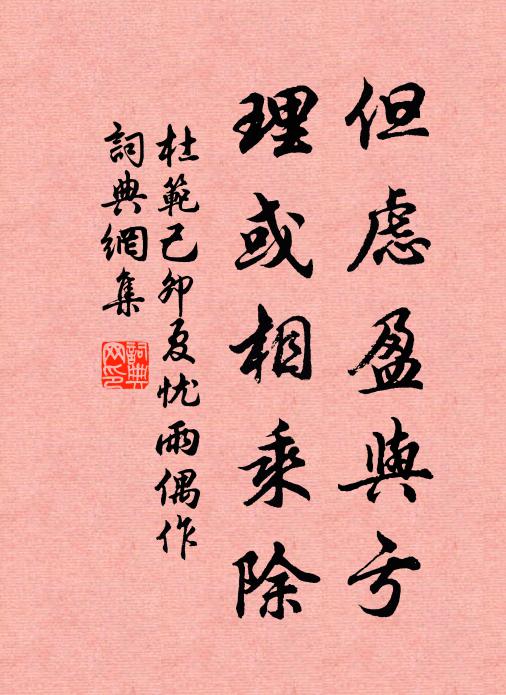 但慮盈與亏
理或相乘除
杜範己卯夏忧雨偶作
詞典網集
詞典网印